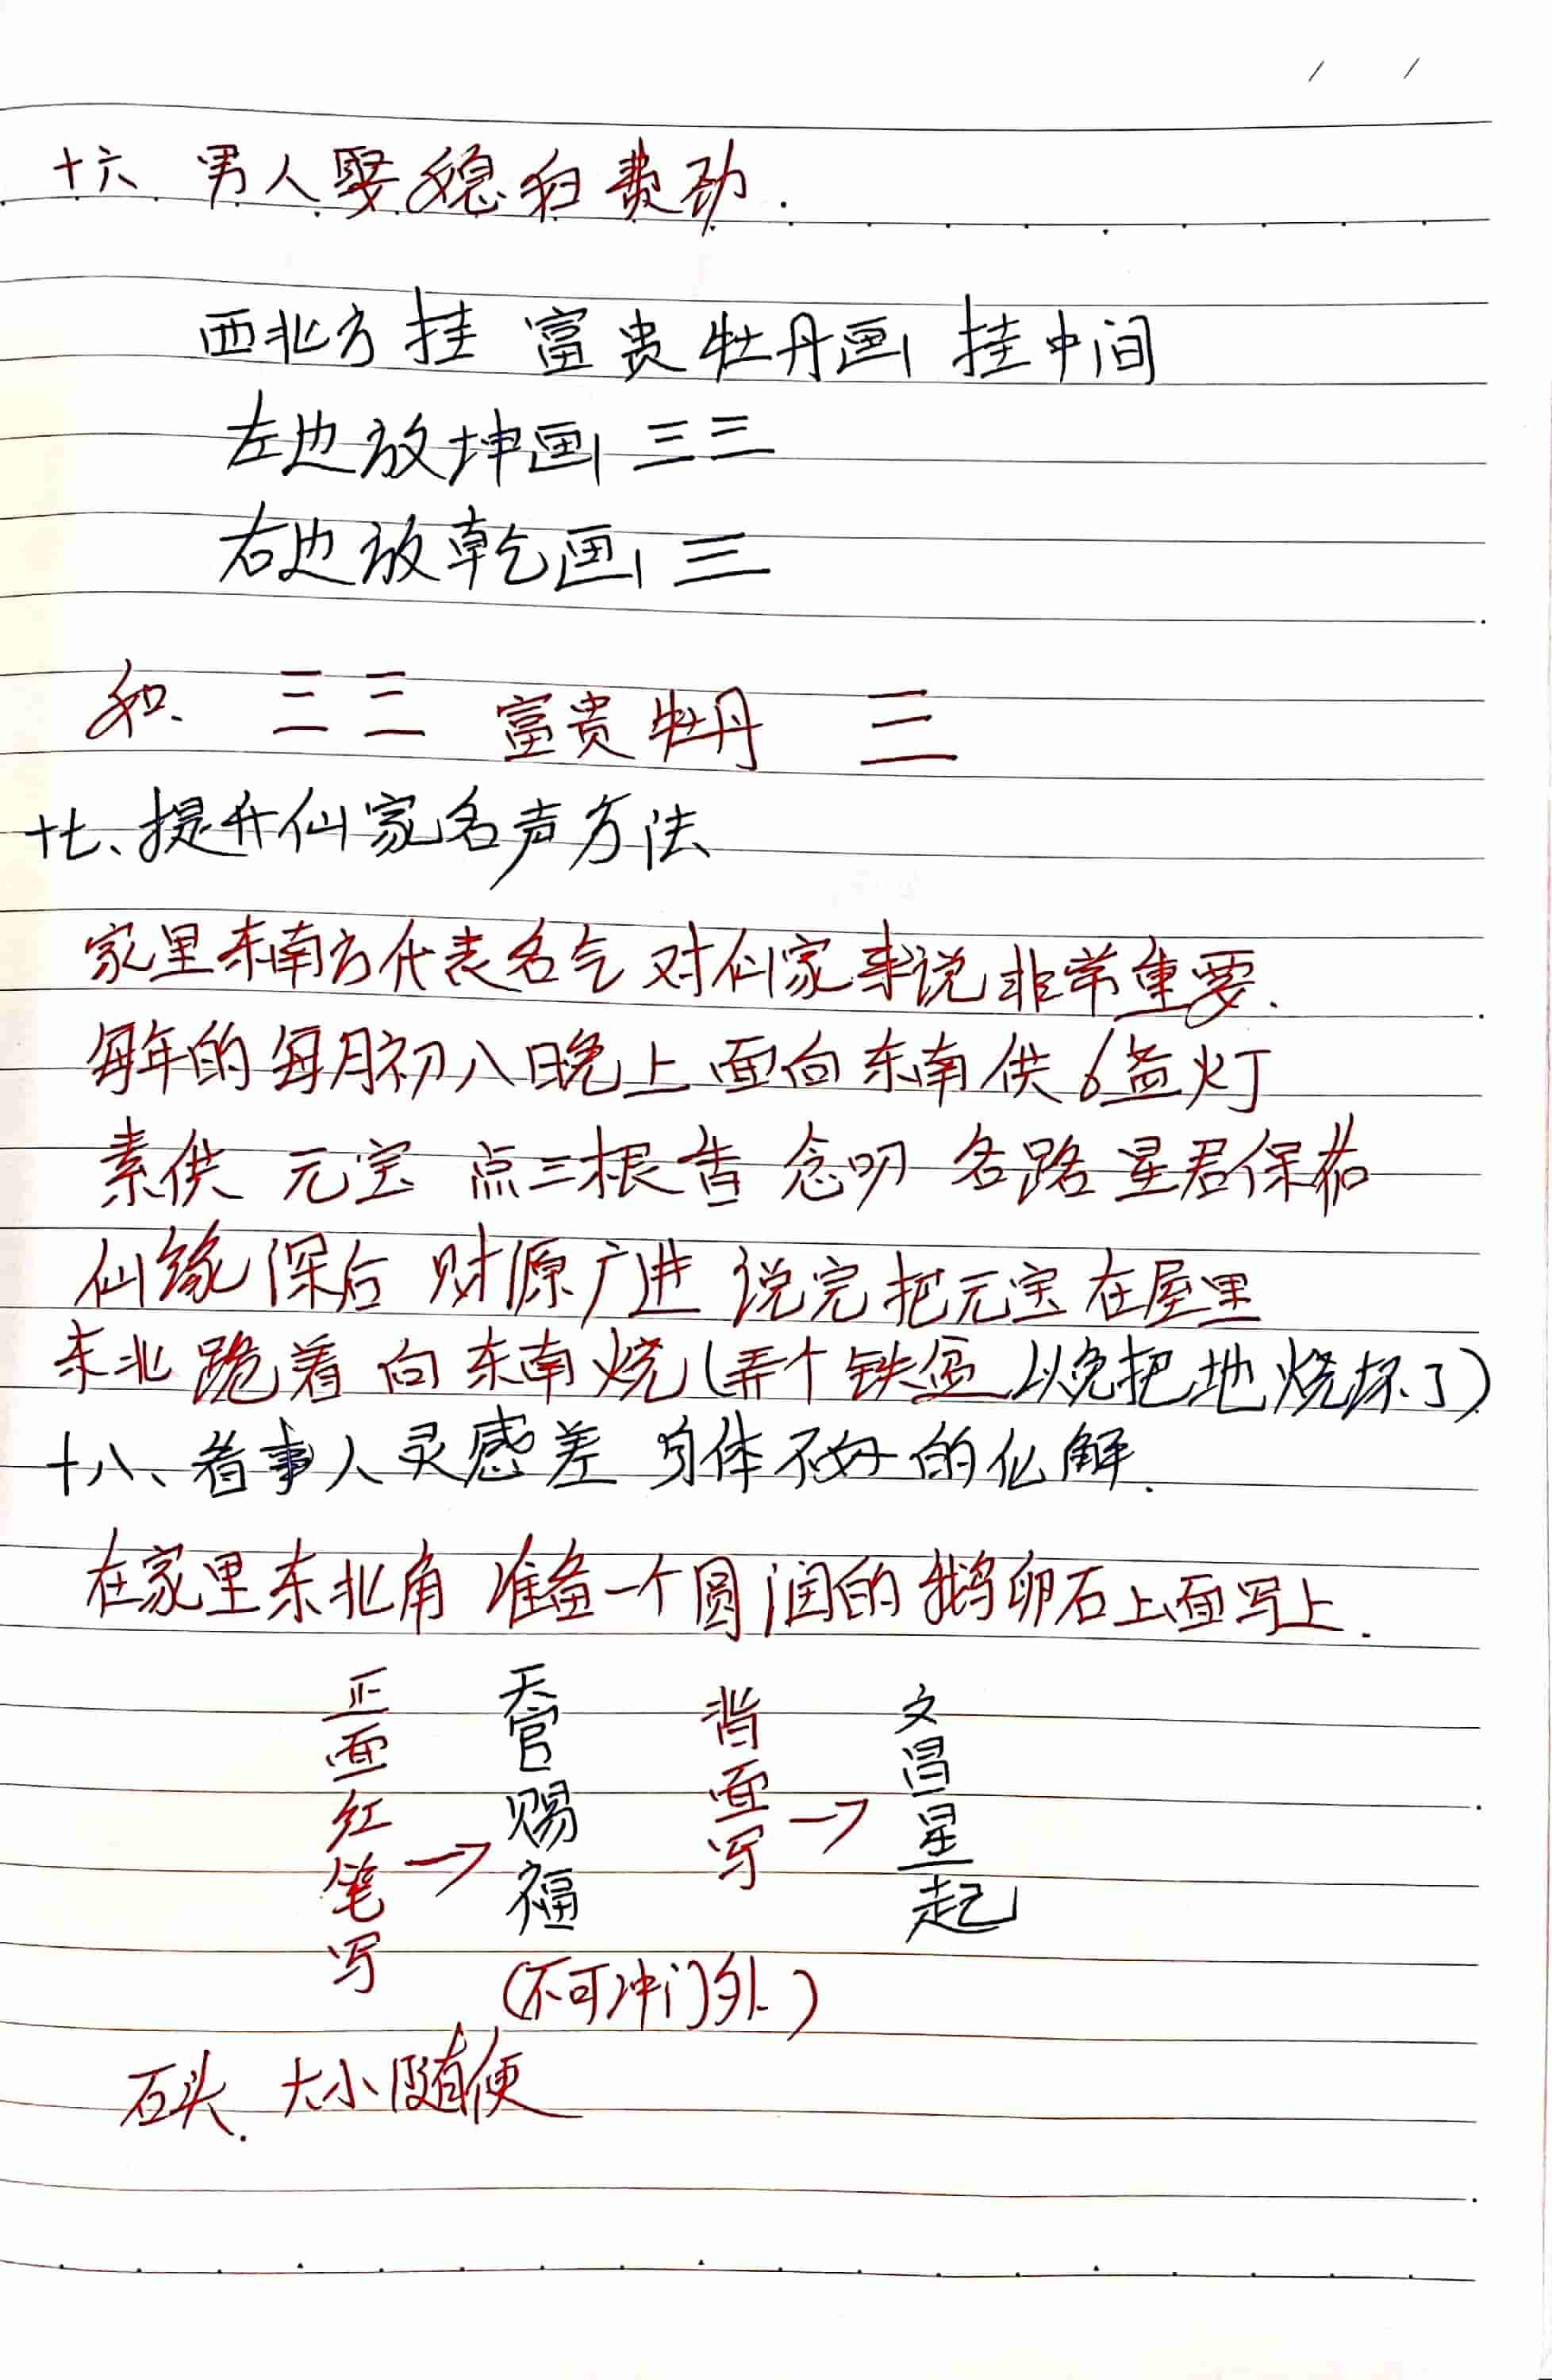 十六 男人娶媳妇费劲.
西北方挂 富贵牡丹画 挂中间
左边放坤画 三三
右边放乾画 三
如. 三三 富贵牡丹 三
十七、提升仙家名声方法
家里东南方代表名气 对仙家来说非常重要.
每年的每月初八晚上 面向东南供6盏灯
素供 元宝 点三根香 念叨 各路星君保佑
仙缘深后 财源广进 说完把元宝在屋里
东北跪着 向东南烧(弄个铁盆以免把地烧坏了)
十八、看事人灵感差 身体不好的化解.
在家里东北角 准备一个圆润的鹅卵石上面写上.
正面红笔写→ 天官赐福 背面写→ 文昌星起
(不可冲门外.)
石头. 大小随便